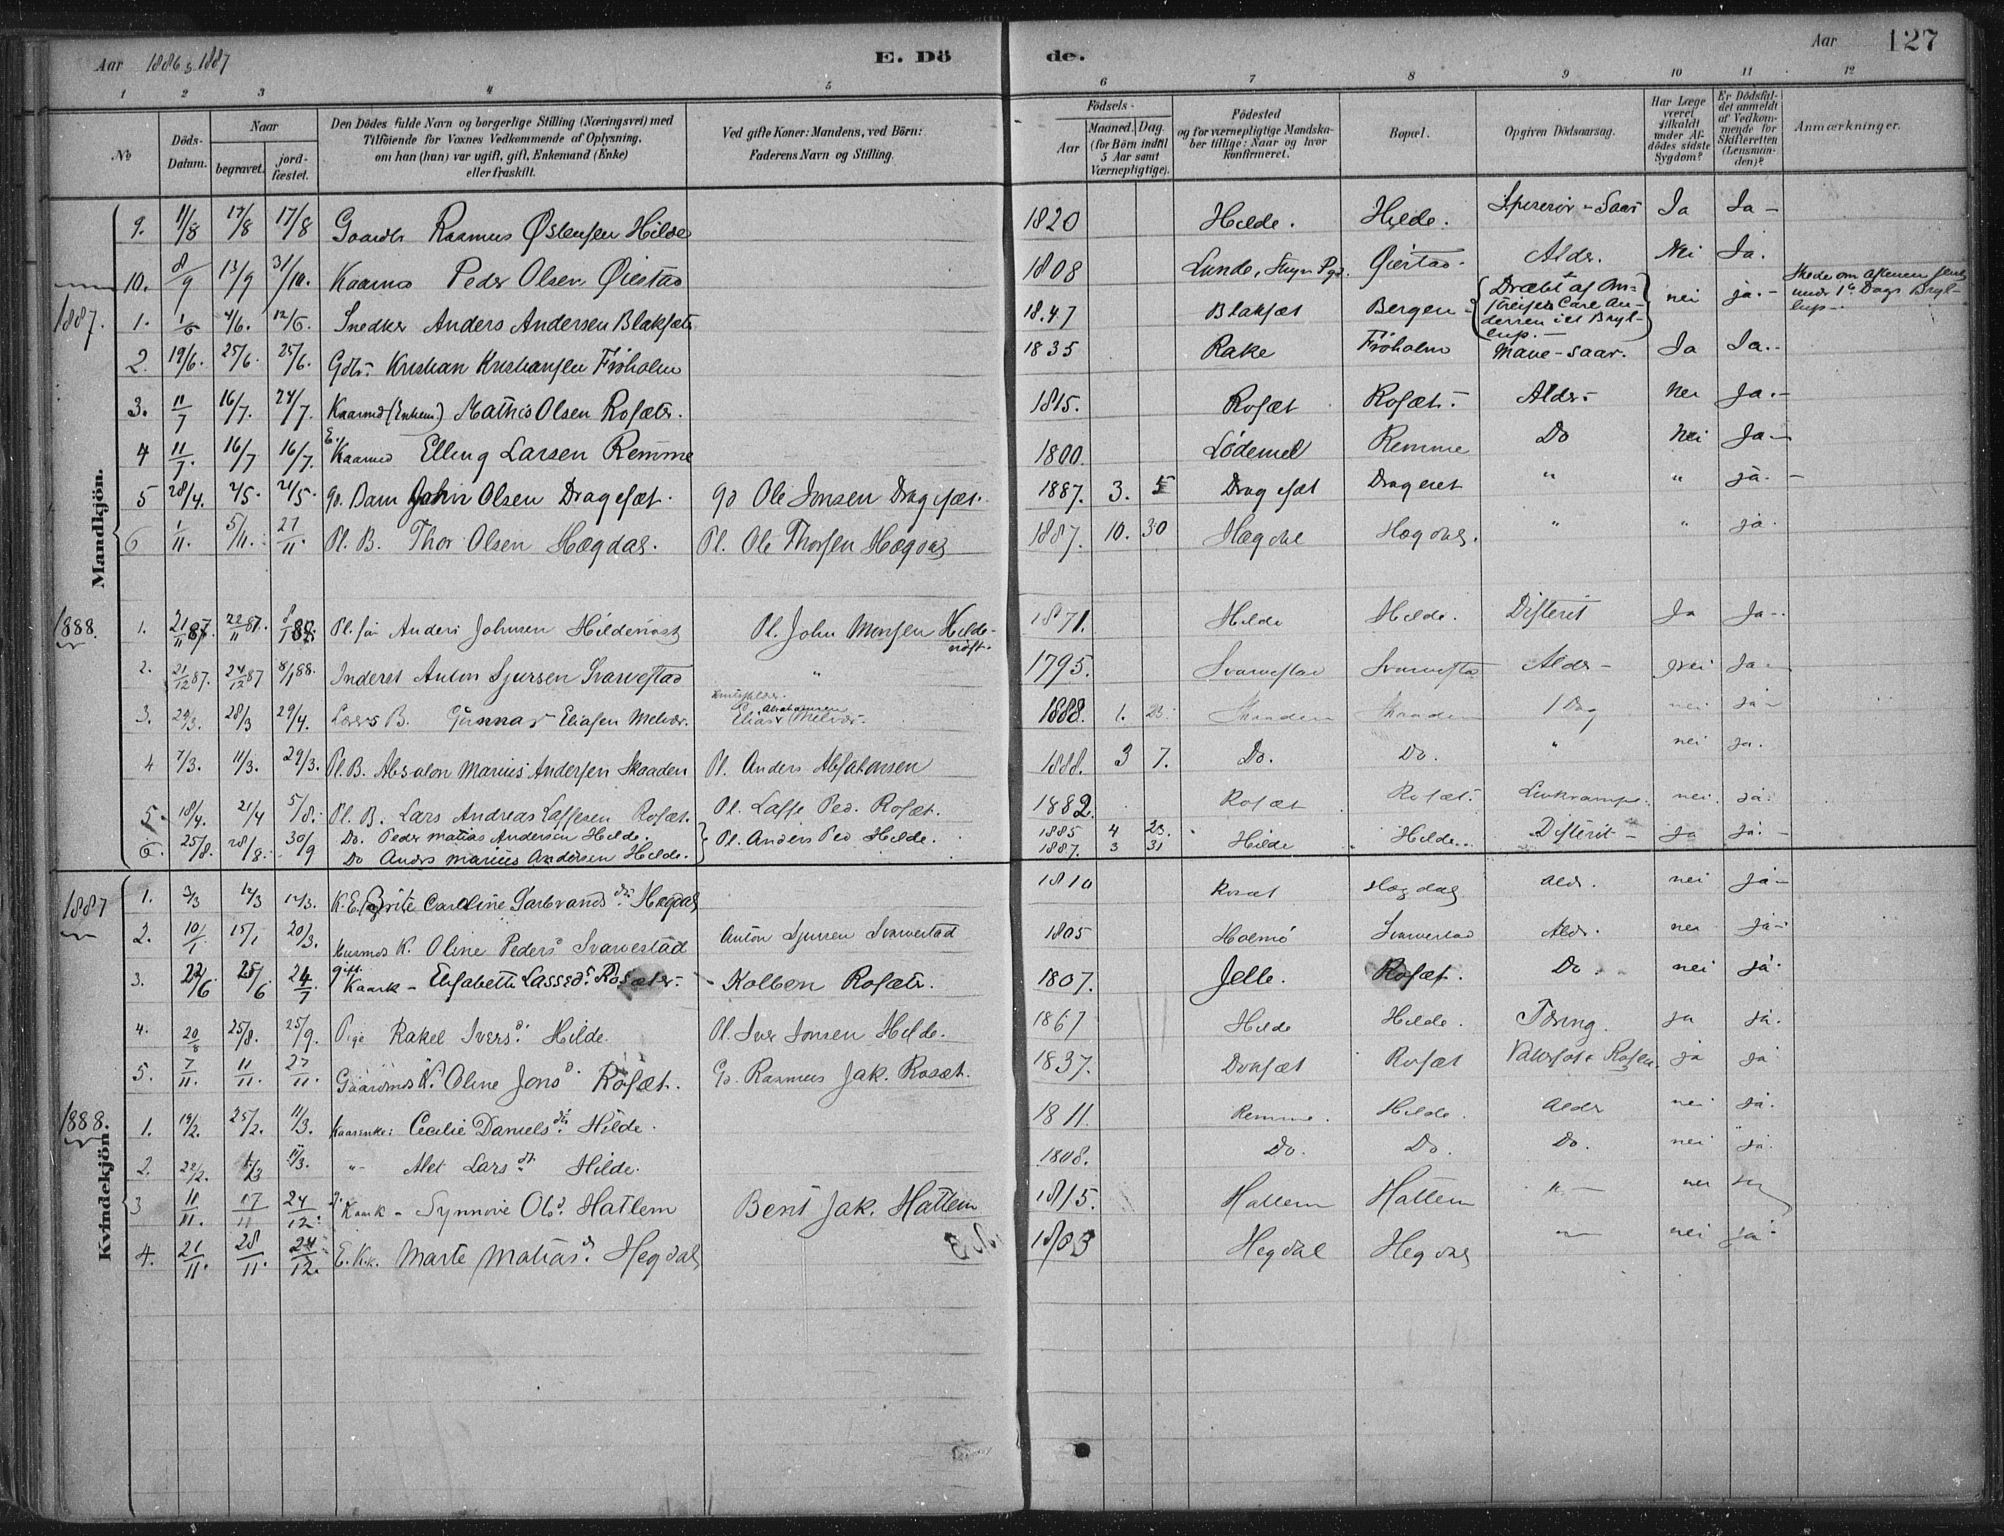 Aar 1886 & 1887 E. Dö de. Aar 127
1 2 3 4 5 6 7 8 9 10 11 12
No
Döds-Datum.
Naar
begravet.
jord-fæstet.
Den Dödes fulde Navn og borgerlige Stilling (Næringsvei) med
Tilföiende for Voxnes Vedkommende af Oplysning,
om han (hun) var ugift, gift, Enkemand (Enke)
eller fraskilt.
Ved gifte Koner: Mandens, ved Börn:
Faderens Navn og Stilling.
Födsels-
Aar
Maaned. Dag.
(for Börn indtil
5 Aar samt
Værnepligtige).
Födested
og for værnepligtige Mandska-
ber tillige: Naar og hvor
konfirmeret.
Bopæl.
Opgiven Dödsaarsag.
Har Læge
været
tilkaldt
under Af-
dödes sidste
Sygdom?
Er Dödsfal-
det anmeldt
af Vedkom-
mende for
Skifteretten
(Lensman-
den)?
Anmærkninger.
Mandkjön.
9. 11/8 17/8 17/8 Gaardbr Rasmus Østensen Hilde 1820 Hilde. Hilde. Spiserør-Saar Ja Ja-
10. 8/9 13/9 31/10. Kaarmd Peder Olsen Øiestad 1808 Lunde, Stryn Pgd. Øiestad. Aldr. Nei Ja.
1887. 1. 1/6 4/6. 12/6. Snedker Anders Andersen Blaksæter 1847 Blaksæt Bergen Dræbt af An-
Carl An-
dersen i et Bryl-
lup.- nei ja.- Skede om Aftenen
under 1ste Dags Bryl-
lup-
2. 19/6. 25/6. 25/6. Gdbr. Kristian Kristiansen Frøholm 1835 Rake Frøholm Mave-saar. Ja Ja.-
3. 11/7 16/7. 24/7. Kaarmd (Enkem) Mathis Olsen Rosæter. 1815. Rosæt Rosæt.- Aldr- Nei Ja.-
4 11/7. 16/7 16/7. E. Kaarmd Elling Larsen Remme 1800. Lødemel Remme Do Nei Ja-
5 28/4. 2/5. 21/5. Gd. Barn John Olsen Dragesæt. Gd Ole Jonsen Dragesæt. 1887. 3. 5 Dragesæt Drageset " " ja. -
6 1/11. 5/11. 27/11 Pl. B. Thor Olsen Hægdal. Pl. Ole Thorsen Hægdal 1887. 10. 30 Hægdal Hægdal. " " ja.
1888. 1. 21/11 87. 22/11 87. 8/1 88. Pl. søn Anders Johnsen Hildenøst Pl. John Monsen Hilde-
nøst. 1871. Hilde Hilde. Difterit Ja Ja-
2. 21/12 87. 24/12 87 8/1 88. Inderst Anton Sjursen Svarvestad " 1795. Svarvestad Svarvestad Aldr- nei Ja-
3. 28/3 29/4. Lærers B. Gunnar Eliasen Melvær. Elias Abrahamsen Melvær. 1888. 1. Skaaden Skaaden 1 Dag nei ja-
4 7/3. 11/3. 29/3. Pl. B. Absalon Marius Andersen Skaaden Pl. Anders Absalonsen 1888. 3 7. Do. Do. " nei ja.
5. 18/4. 21/4 5/8. Pl. B. Lars Andreas Lassesen Rosæt. Pl. Lasse Ped. Rosæt. 1882. Rosæt Rosæt. nei. ja.
6. 25/8. 28/8. 30/9 Do. Peder Matias Andersen Hilde. Pl. Anders Ped Hilde. 1885 4 23. Hilde Hilde.. Difterit- Ja Ja.-
Do Anders Marius Andersen Hilde. 1887. 3 31
Kvindekjön.
1887 1. 3/3 12/3 12/3. K. E. Brite Caroline Garbrands dtr Hægdal 1810 Rosæt Hægdal Aldr. nei ja-
2. 10/1 15/1 20/3. Husmds K. Oline Peders d Svarvestad Anton Sjursen Svarvestad 1805 Holmø Svarvestad Aldr. nei ja-
3. 22/6 25/6 24/7 gift. Kaark- Elisabeth Lasses d. Rosæter. Kolben Rosæter. 1807. Jelle. Rosæt. Do. nei ja.
4. 20/8 25/8. 25/9. Pige Rakel Ivers d. Hilde. Pl. Iver Jonsen Hilde. 1867 Hilde Hilde. Tæring. ja ja.
5. 7/11. 11/11. 27/11. Gaardmds K. Oline Jons d. Rosæt. Gd. Rasmus Jak. Rosæt. 1837. Doksæt Rosæt Rosen. ja ja
1888. 1. 19/2. 25/2. 11/3. Kaarenke: Cecilie Daniels dtr. Hilde. 1811. Remme. Hilde. Aldr nei ja.
2. 22/2. 11/3. " - Alet Lars dt. Hilde. 1808. Do. Do. Do. nei ja.
3 11/11. 17/11 24/12. Kaark- Synnøve Ols d. Hatlem Bent Jak. Hatlem 1815. Hatlem Hatlem " - nei ja
4. 21/11. 28/11. 24/12. E. Kk. Marte Matias d. Hegdal 1803 Hegdal Hegdal " nei ja.